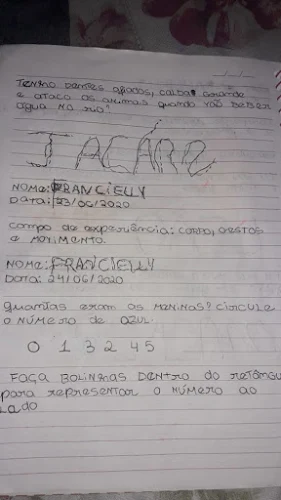 Tenho dentes afiados, calda grande
e ataco os animais quando vão beber
água no rio?
JACÁRE
Nome: FRANCIELLY
Data: 23/06/2020
Campo de experiência: corpo, gestos
e movimento.
Nome: FRANCIELLY
Data: 24/06/2020
Quantas eram as meninas? Circule
o número de azul.
0 1 3 2 4 5
Faça bolinhas dentro do retângu
para representar o número ao
lado